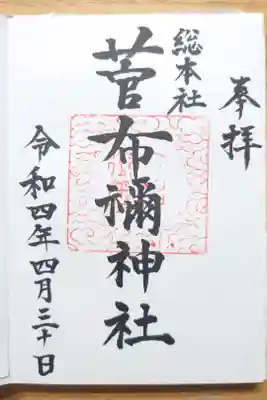 奉拝
総本社
菅布禰神社
令和四年四月三十日